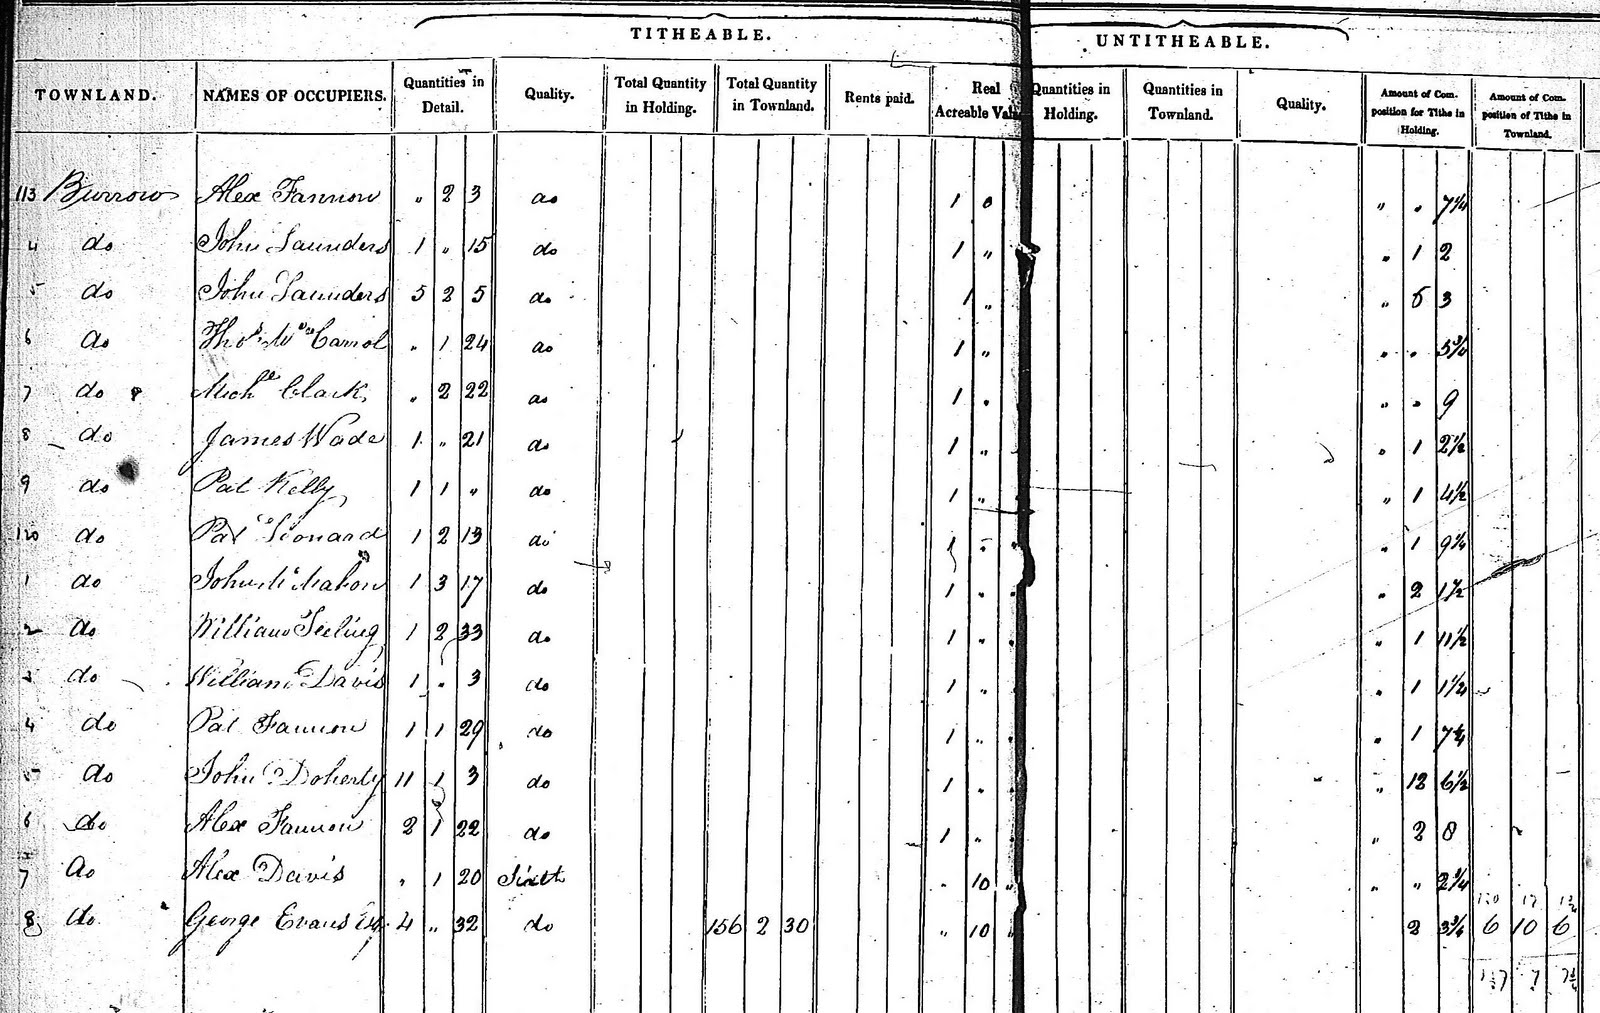 TITHEABLE. UNTITHEABLE.
TOWNLAND. NAMES OF OCCUPIERS. Quantities in Detail. Quality. Total Quantity in Holding. Total Quantity in Townland. Rents paid. Real Acreable Val Quantities in Holding. Quantities in Townland. Quality. Amount of Com. position for Tithe in Holding. Amount of Com. position of Tithe in Townland.
113 Burrow Alex Fannon " 2 3 do 1 0 " " 7¼
4 do John Saunders 1 " 15 do 1 " " 1 2
5 do John Saunders 5 2 5 do 1 " " 6 3
6 do Thos Mc Carrol " 1 24 do 1 " " " 5¾
7 do Michl Clark " 2 22 do 1 " " " 9
8 do James Wade 1 " 21 do 1 " " 1 2½
9 do Pat Kelly 1 1 " do 1 " " 1 4½
120 do Pat Leonard 1 2 13 do 1 " " " 1 9¼
1 do John McMahon 1 3 17 do 1 " " " 2 1½
2 do William Seeling 1 2 33 do 1 " " " 1 11½
3 do William Davis 1 " 3 do 1 " " 1 1¼
4 do Pat Fannon 1 1 29 do 1 " " " 1 7¼
5 do John Doherty 11 1 3 do 1 " " " 12 6½
6 do Alex Fannon 2 1 22 do 1 " " " 2 8
7 do Alex Davis " 1 20 Sixth " 10 " " " 2¼
8 do George Evans Esq 4 " 32 do 156 2 30 " 10 " 2 3¾ 6 10 6